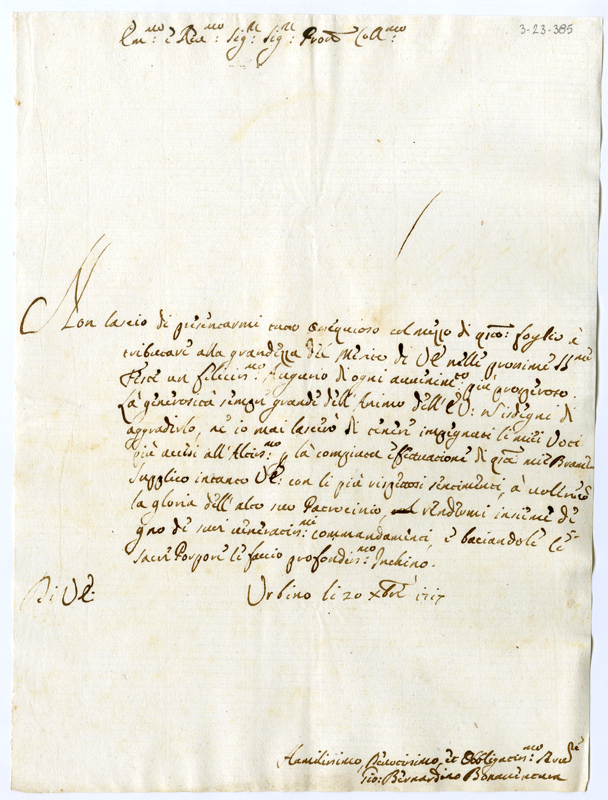 3-23-385
Em.mo e Reu.mo Sig.re Sig.re Pron Coll.mo
Non lascio di presentarmi tutto ossequioso col mezzo di q.sto foglio à
tributare alla grandezza del merito di VE nelle prossime SS.me
Feste un felicis.mo Augurio di ogni auuenim.to più prosperoso.
La generosità sempre grande dell'Animo dell'EV: si degni di
aggradirlo, nè io mai lascierò di tenere impegnati li miei Voti
più accesi all'Altis.mo p la compiuta effettuazione di q.ta mie Brame
Supplico intanto VE: con li più rispettosi sentimenti, à
la gloria dell'alto suo Patrocinio, rendermi insieme de
gno de suoi ueneratis.mi commandamenti, e baciandole le
Sacre Porpore le faccio profondis.mo Inchino.
Di VE: Urbino li 20 Xbre 1717
Humilissimo, Deuotissimo, et Obbligatis.mo Seru.re
Gio: Bernardino Bonauentura